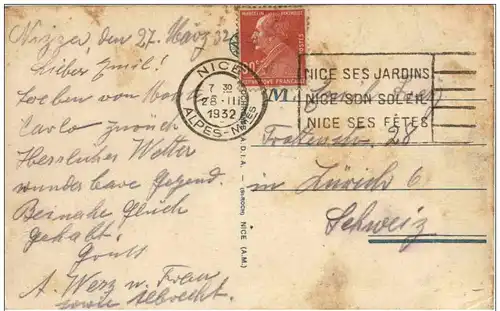 Nizza, den 27. März 32.
Lieber Emil!
Soeben von Monte
Carlo zurück
Herrliches Wetter
wunderbare Gegend.
Beinahe Glück
gehabt.
Gruss
A. Werz u. Frau
sowie Albrecht.
BERTHELOT
POSTES
NICE
7 30
28 - III
1932
ALPES-MMES
NICE SES JARDINS
NICE SON SOLEIL
NICE SES FÊTES
M.
28
in Zürich 6
Schweiz
NICE (A.M.)